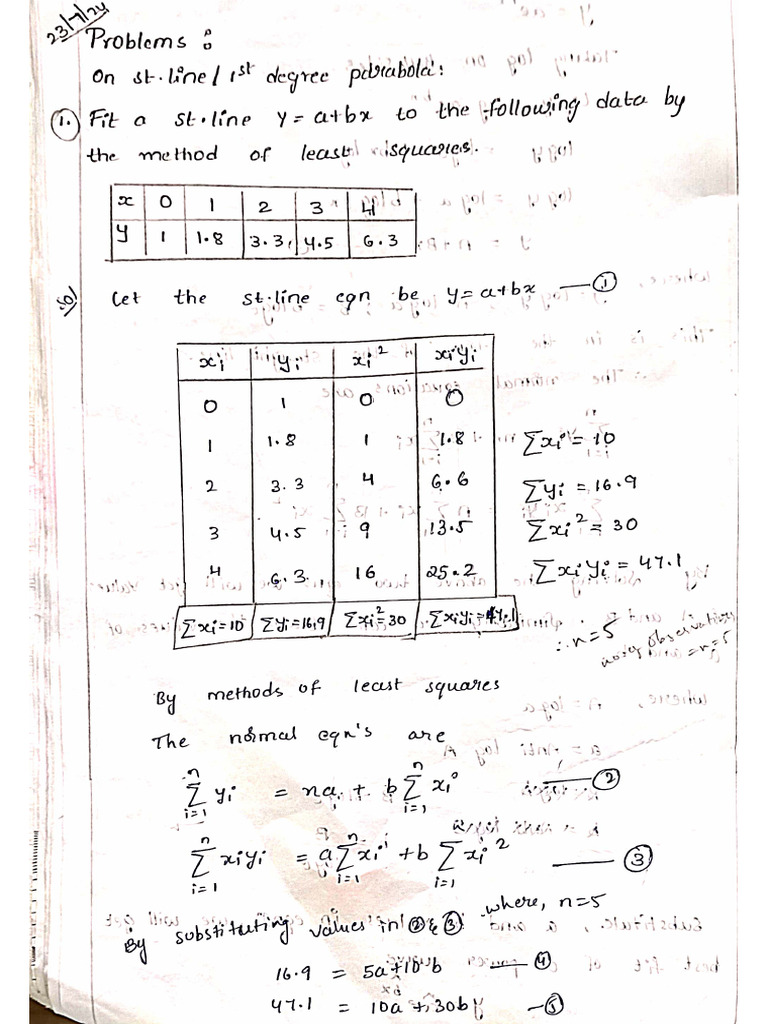 23/7/24
Problems :
On st.line / 1st degree parabola:
1. Fit a st.line y = a+bx to the following data by
the method of least squares.
x 0 1 2 3 4
y 1 1.8 3.3 4.5 6.3
Sol Let the st.line eqn be y = a+bx — ①
xi yi xi² xiyi
0 1 0 0
1 1.8 1 1.8 Σxi = 10
2 3.3 4 6.6 Σyi = 16.9
3 4.5 9 13.5 Σxi² = 30
4 6.3 16 25.2 Σxiyi = 47.1
Σxi=10 Σyi=16.9 Σxi²=30 Σxiyi=47.1
∴ n=5
no.of observations
= n = 5
By methods of least squares
The normal eqn's are
Σ_{i=1}^{n} yi = na + b Σ_{i=1}^{n} xi — ②
Σ_{i=1}^{n} xiyi = a Σ_{i=1}^{n} xi + b Σ_{i=1}^{n} xi² — ③
By substituting values in ② & ③ where, n=5
16.9 = 5a+10b — ④
47.1 = 10a + 30b — ⑤